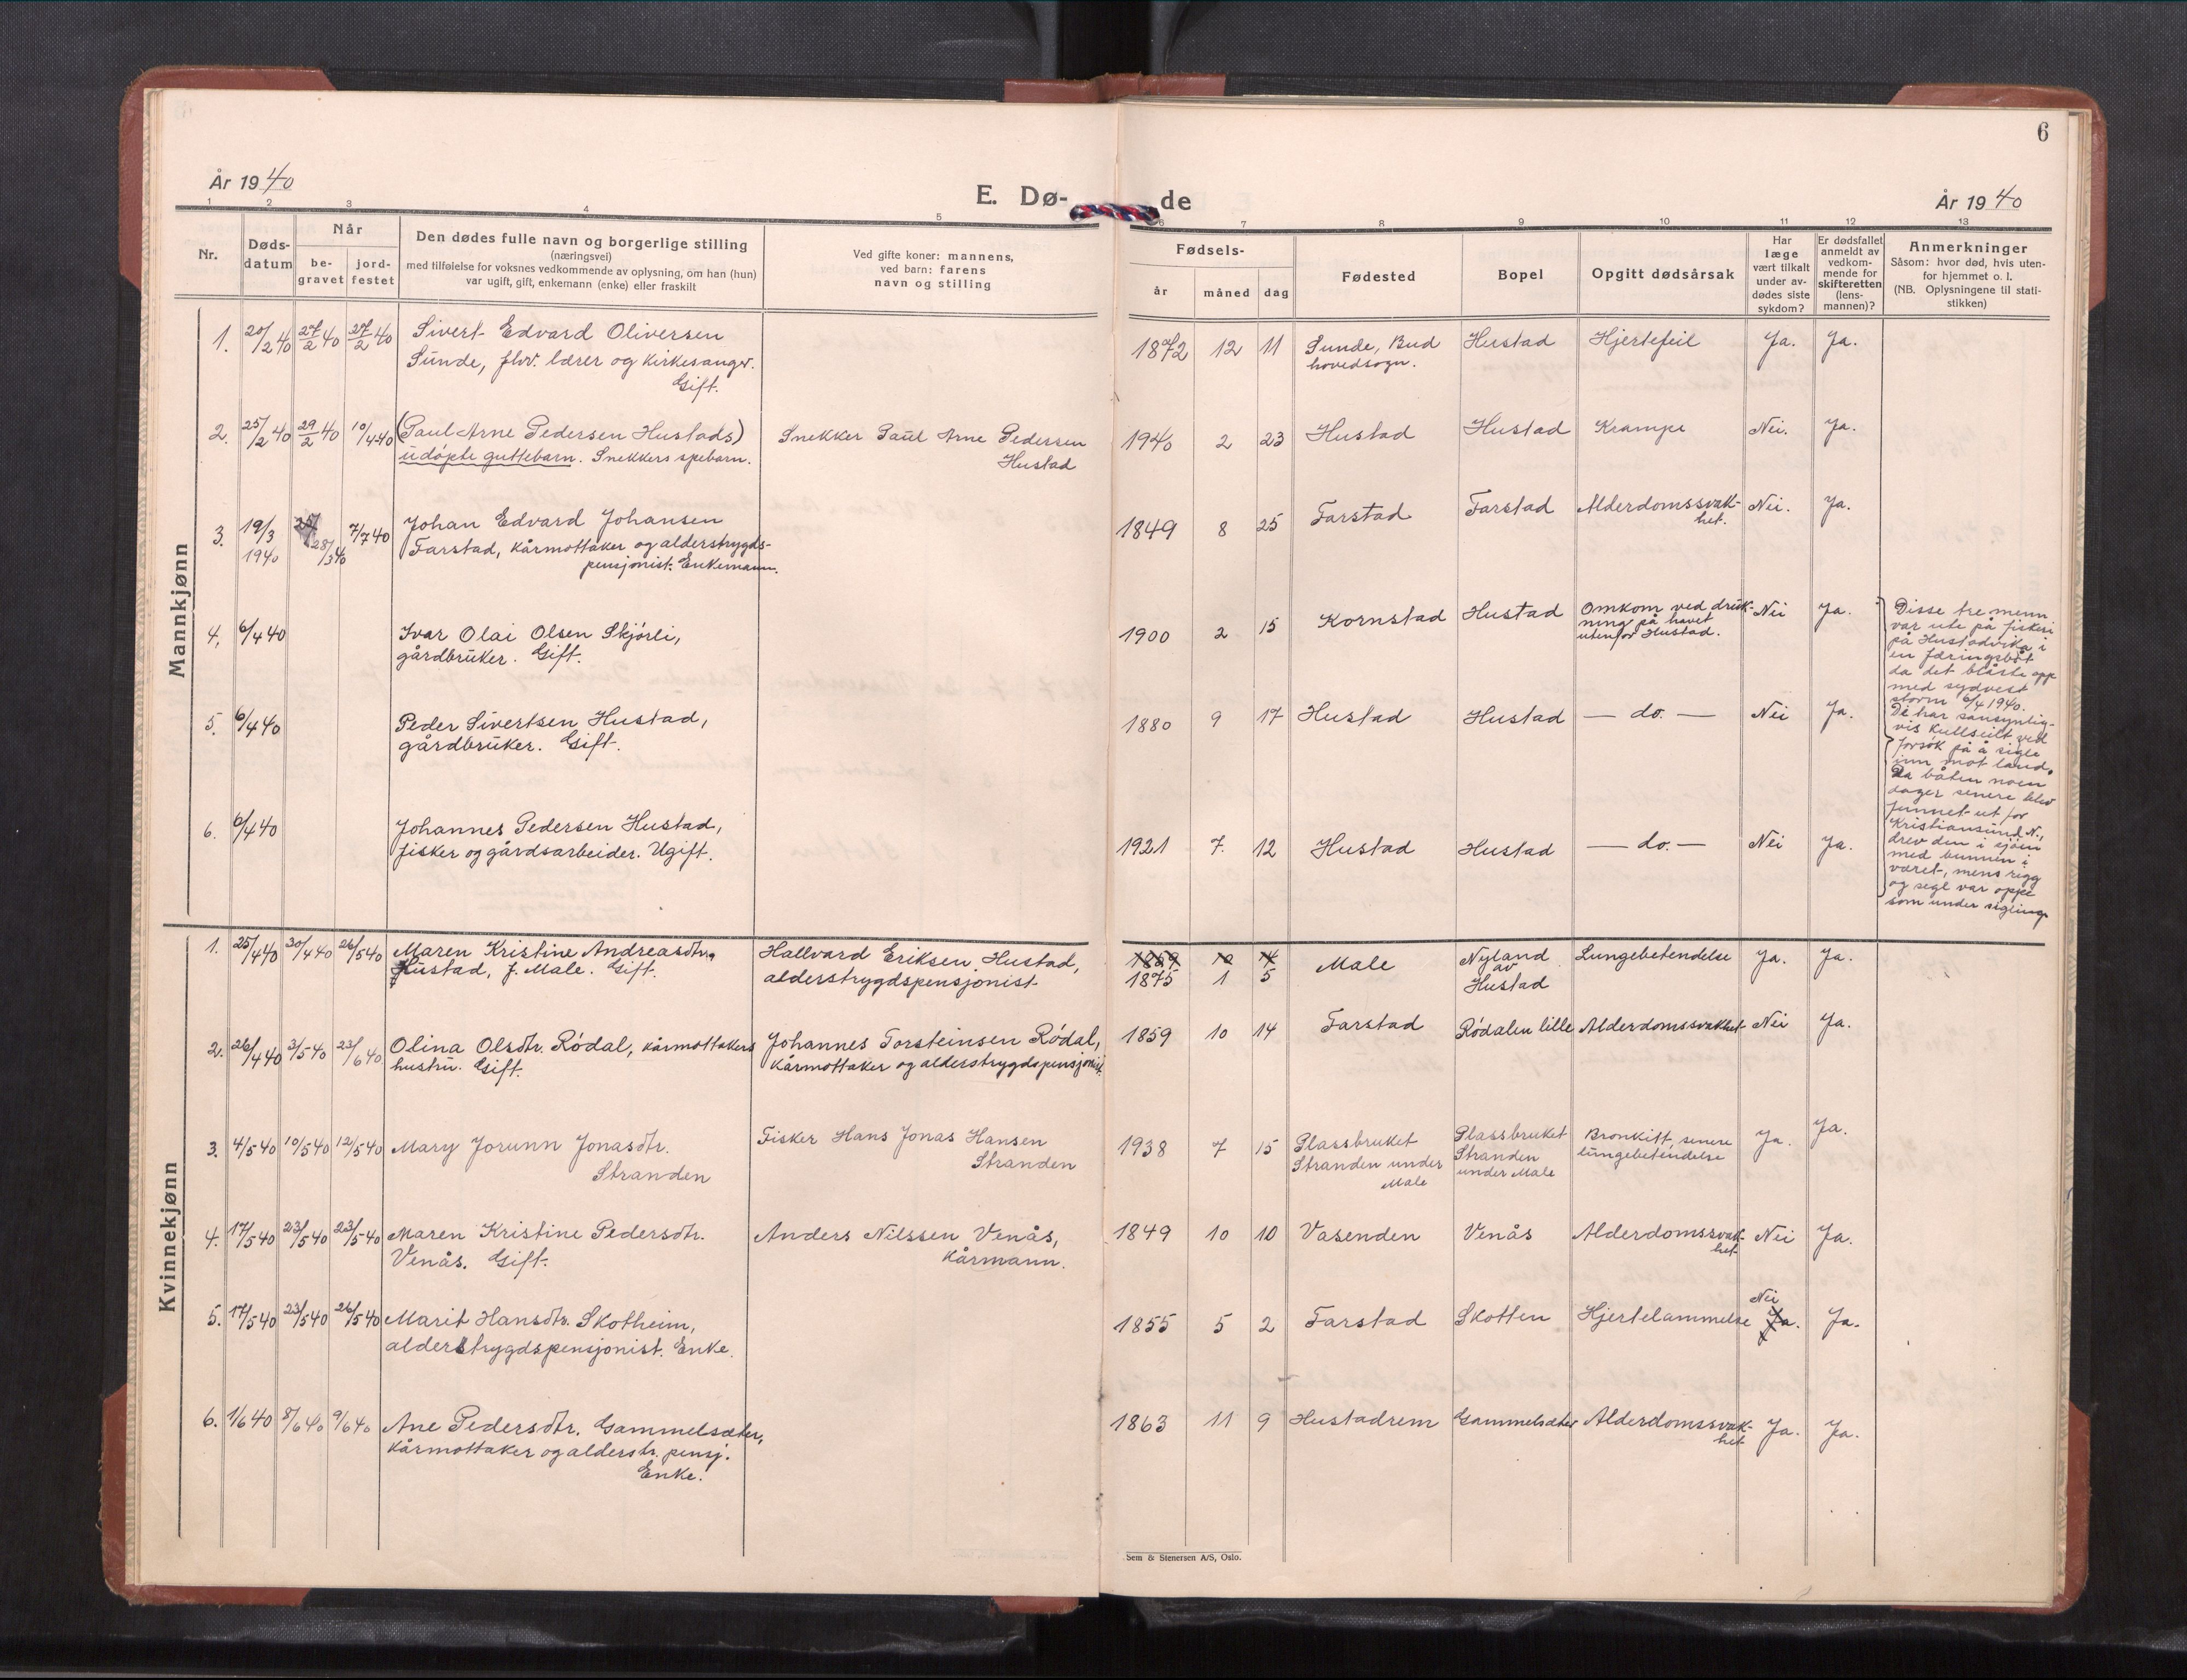 6
År 1940
E. Dø-
de
År 1940
1 2 3 4 5 6 7 8 9 10 11 12 13
Nr.
Døds-
datum
Når
be-
gravet
jord-
festet
Den dødes fulle navn og borgerlige stilling
(næringsvei)
med tilføielse for voksnes vedkommende av oplysning, om han (hun)
var ugift, gift, enkemann (enke) eller fraskilt
Ved gifte koner: mannens,
ved barn: farens
navn og stilling
Fødsels-
år måned dag
Fødested
Bopel
Opgitt dødsårsak
Har
læge
vært tilkalt
under av-
dødes siste
sykdom?
Er dødsfallet
anmeldt av
vedkom-
mende for
skifteretten
(lens-
mannen)?
Anmerkninger
Såsom: hvor død, hvis uten-
for hjemmet o. l.
(NB. Oplysningene til stati-
stikken)
Mannkjønn
1. 20/2 40 27/2 40 27/2 40 Sivert Edvard Oliversen
Sunde, fhv. lærer og kirkesanger.
Gift.
1872 12 11 Sunde, Bud
hovedsogn.
Hustad Hjertefeil Ja. Ja.
2. 25/2 40 29/2 40 10/4 40 (Paul Arne Pedersen Hustads)
udöpte guttebarn. Snekkers spebarn.
Snekker Paul Arne Pedersen
Hustad
1940 2 23 Hustad Hustad Krampe Nei. Ja.
3. 19/3
1940
28/3 40 7/7 40 Johan Edvard Johansen
Farstad, kårmottaker og alderstrygds-
pensjonist. Enkemann.
1849 8 25 Farstad Farstad Alderdomssvak-
het.
Nei. Ja.
4. 6/4 40 Ivar Olai Olsen Skjörli,
gårdbruker. Gift.
1900 2 15 Kornstad Hustad Omkom ved druk-
ning på havet
utenfor Hustad.
Nei Ja.
5. 6/4 40 Peder Sivertsen Hustad,
gårdbruker. Gift.
1880 9 17 Hustad Hustad — do. — Nei Ja.
6. 6/4 40 Johannes Pedersen Hustad,
fisker og gårdsarbeider. Ugift.
1921 7. 12 Hustad Hustad — do. — Nei Ja.
Disse tre menn
var ute på fiskeri
på Hustadvika i
en færingsbåt
da det blåste opp
med sydvest
storm 6/4 1940.
De har sansynlig-
vis kullseilt ved
forsök på å sigle
inn mot land.
Da båten noen
dager senere blev
funnet ut for
Kristiansund N.,
drev den i sjöen
med bunnen i
været, mens rigg
og segl var oppe
som under sigling.
Kvinnekjønn
1. 25/4 40 30/4 40 26/5 40 Maren Kristine Andreasdtr.
Hustad, f. Male. Gift.
Hallvard Eriksen Hustad,
alderstrygdspensjonist
1859 10 14
1875 1 5
Male Nyland
av
Hustad
Lungebetendelse Ja. Ja.
2. 26/4 40 3/5 40 23/6 40 Olina Olsdtr. Rödal, kårmottakers
hustru. Gift.
Johannes Torsteinsen Rödal,
kårmottaker og alderstrygdspensjonist.
1859 10 14 Farstad Rödalen lille Alderdomssvakhet Nei Ja.
3. 4/5 40 10/5 40 12/5 40 Mary Jorunn Jonasdtr.
Stranden
Fisker Hans Jonas Hansen
Stranden
1938 7 15 Plassbruket
Stranden under
Male
Plassbruket
Stranden
under Male
Bronkitt, senere
lungebetendelse
Ja. Ja.
4. 17/5 40 23/5 40 23/5 40 Maren Kristine Pedersdtr.
Venås. Gift.
Anders Nilssen Venås,
Kårmann.
1849 10 10 Vasenden Venås Alderdomssvak-
het
Nei Ja.
5. 17/5 40 23/5 40 26/5 40 Marit Hansdtr. Skotheim,
alderstrygdspensjonist. Enke.
1855 5 2 Farstad Skotten Hjertelammelse Nei
Ja. Ja.
6. 1/6 40 8/6 40 9/6 40 Ane Pedersdtr. Gammelsæter,
kårmottaker og alderstr. pensj.
Enke.
1863 11 9 Hustadrem Gammelsæter Alderdomssvak-
het
Ja. Ja.
Sem & Stenersen A/S, Oslo.